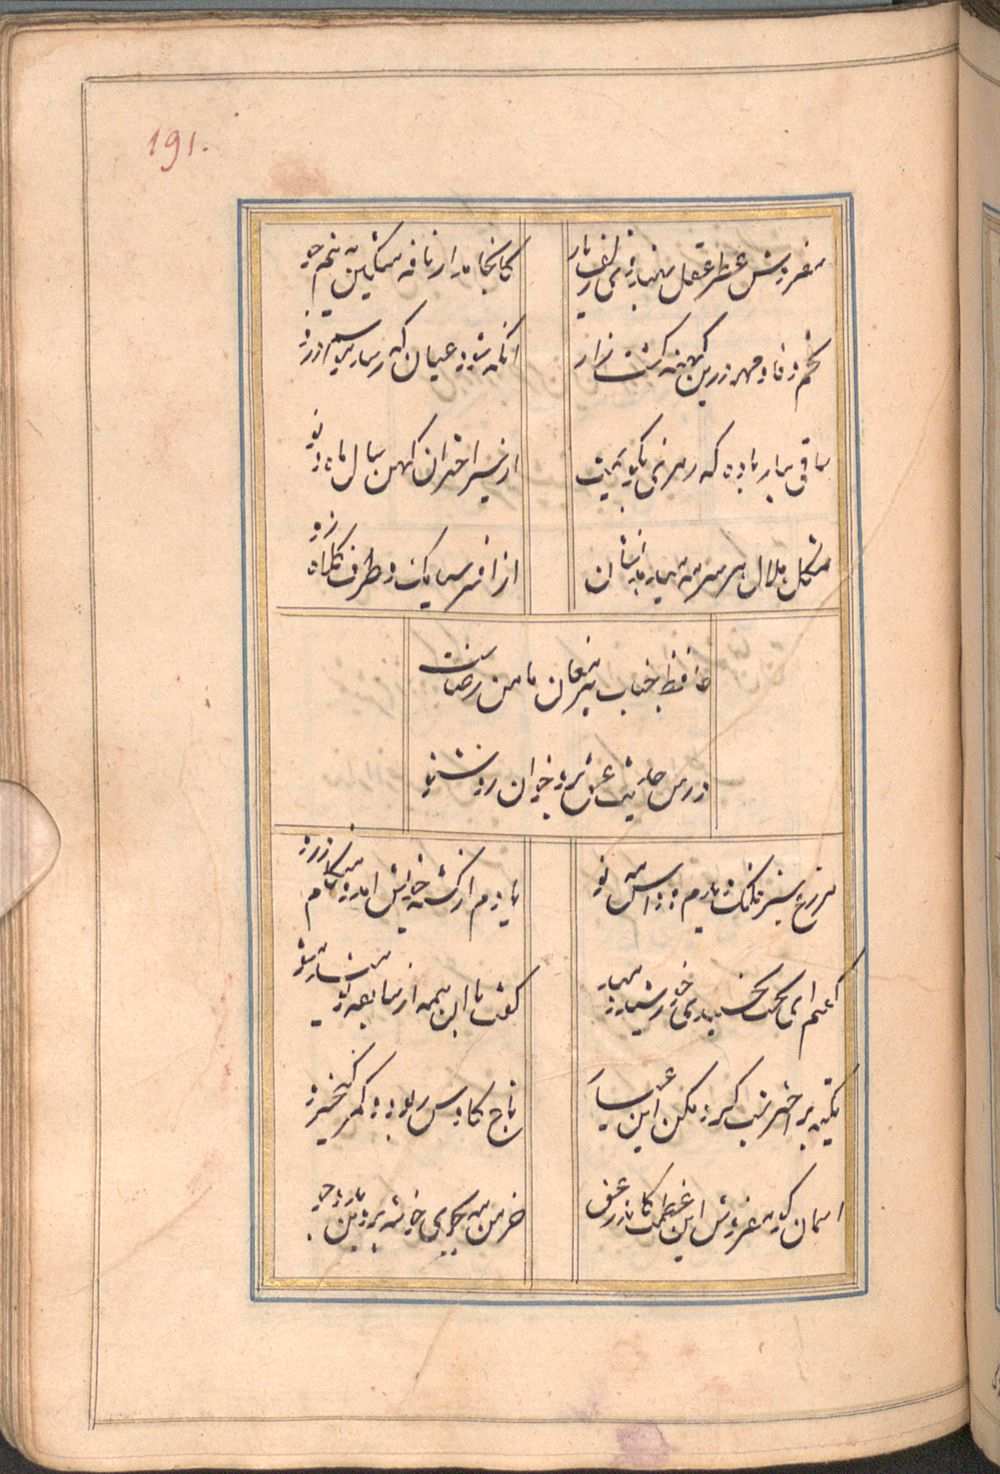 191.
مفروش عطر عقل بهندوی زلف یار کانجا هزار نافه مشکین به نیم جو
تخم وفا و مهر درین کهنه کشت زار انگه شود عیان که رسد موسم درو
ساقی بیار باده که رمزی بگویمت از سیر اختران کهن سال و ماه نو
شکل هلال هر سر مه میدهد نشان از افسر سیامک و طرف کلاه زو
حافظ جناب پیر مغان مامن وفاست
درس حدیث عشق برو خوان و زو شنو
مزرع سبز فلک دیدم و داس مه نو یادم از کشته خویش امد و هنکام درو
گفتم ای بخت بخسبیدی و خورشید دمید گفت با این همه از سابقه نومید مشو
تکیه بر اختر شب کرد مکن کاین عیار تاج کاوس ربود و کمر کیخسرو
اسمان کو مفروش این عظمت کاندر عشق خرمن مه بجوی خوشه پروین بدو جو